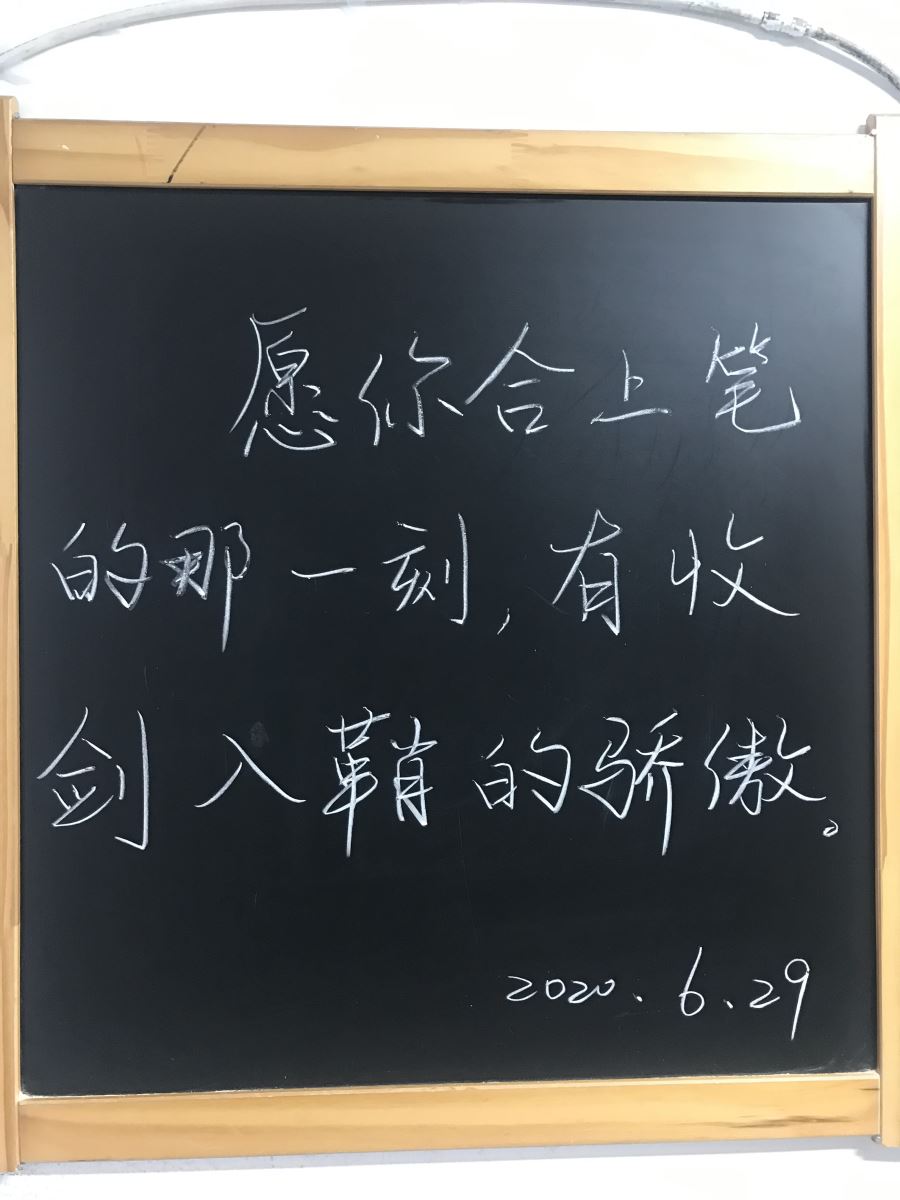 愿你合上笔
的那一刻,有收
剑入鞘的骄傲。
2020.6.29